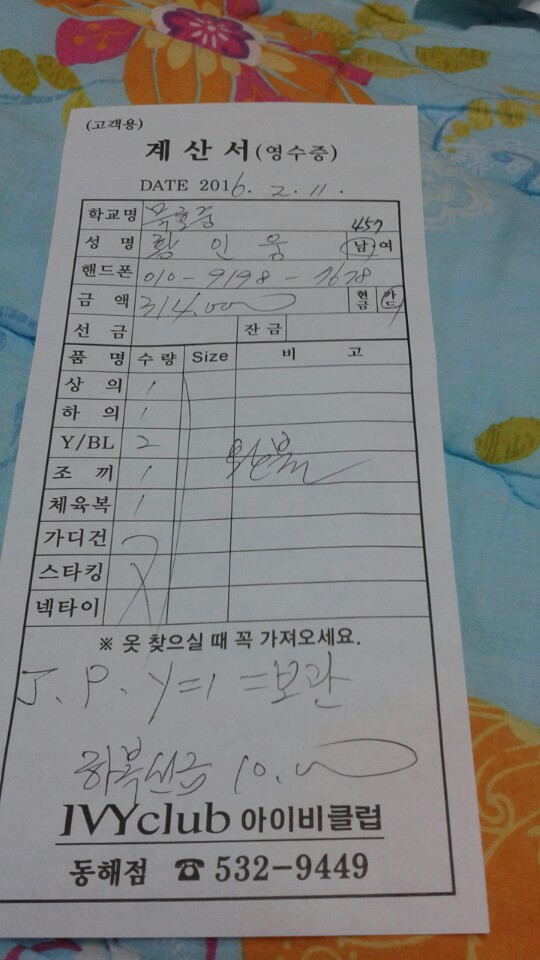 (고객용)
계 산 서 (영수증)
DATE 2016. 2. 11.
학교명 묵호중
457
성 명 황 인 웅 남 여
핸드폰 010-9198-7678
금 액 314.00 현금 카드
선 금 잔 금
품 명 수 량 Size 비 고
상 의 1
하 의 1
Y/BL 2
조 끼 1 완불
체육복 1
가디건
스타킹
넥타이
※ 옷 찾으실 때 꼭 가져오세요.
J. P. Y=1 =보관
하복선금 10.
IVYclub 아이비클럽
동해점 ☎ 532-9449